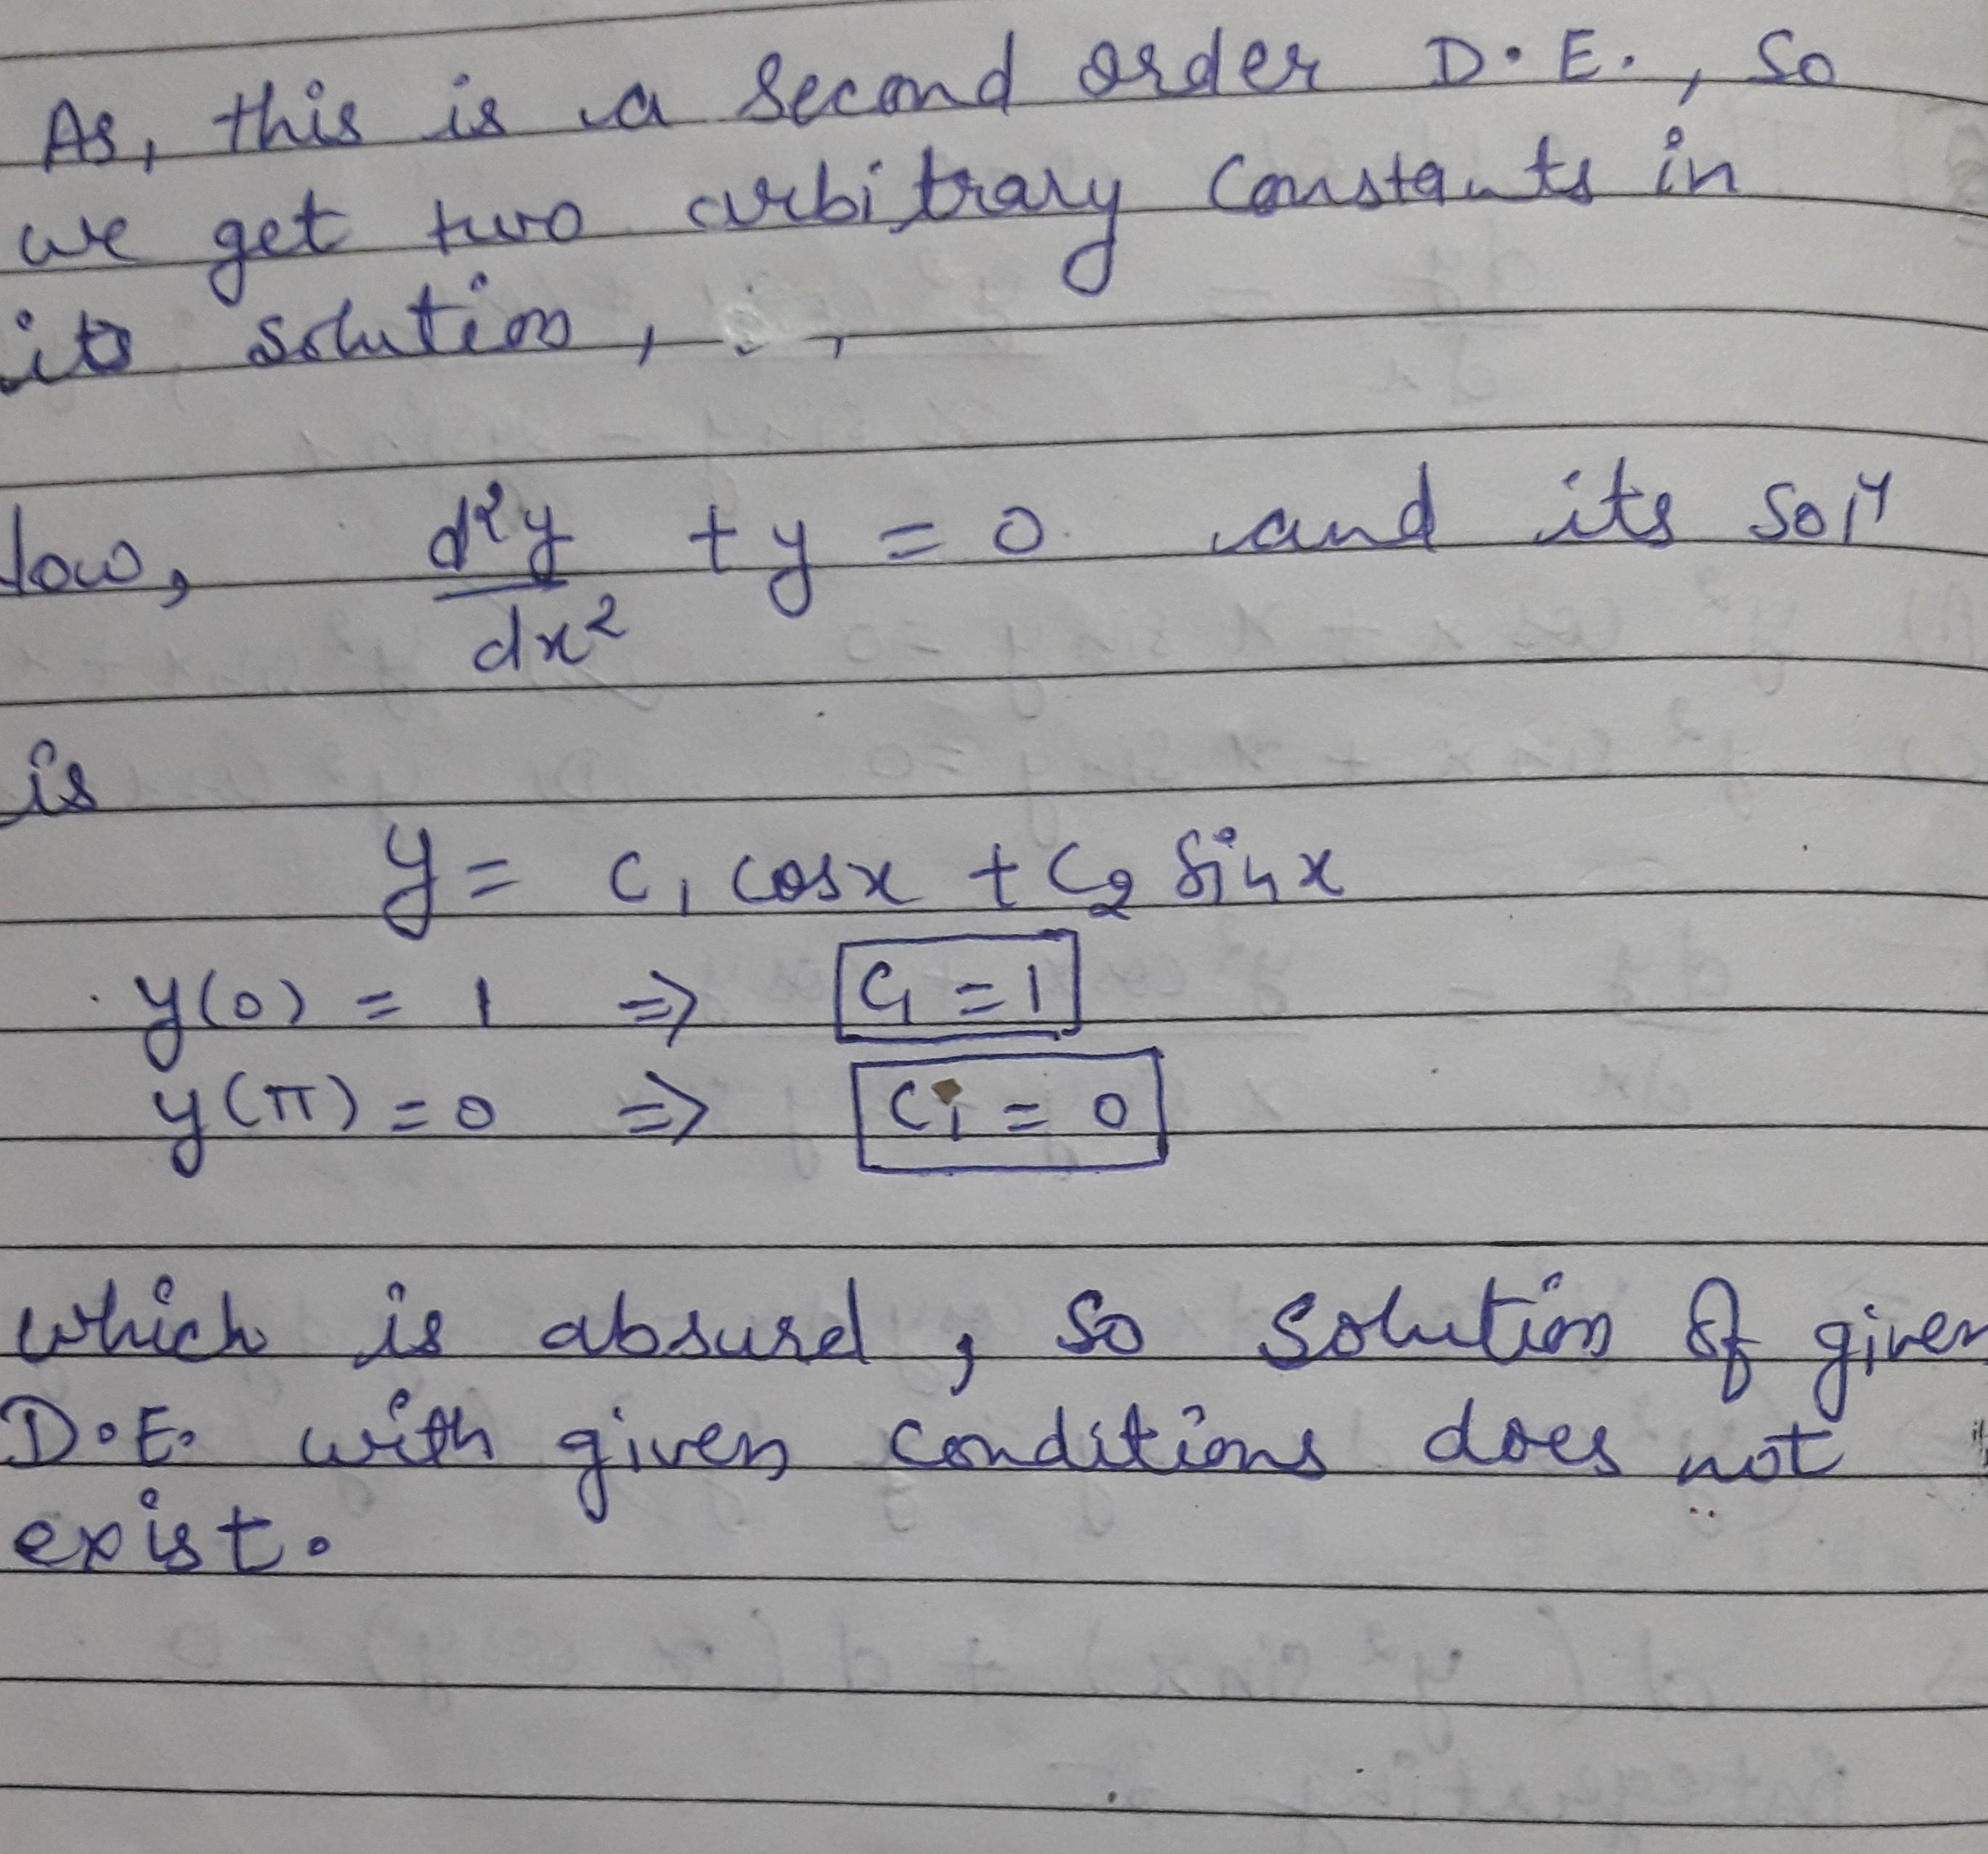 As, this is a second order D.E., so
we get two arbitrary constants in
its solution,
low, d²y/dx² + y = 0 and its solⁿ
is
y = c₁ cosx + c₂ sinx
y(0) = 1 ⇒ c₁ = 1
y(π) = 0 ⇒ c₁ = 0
which is absurd, so solution of given
D.E. with given conditions does not
exist.